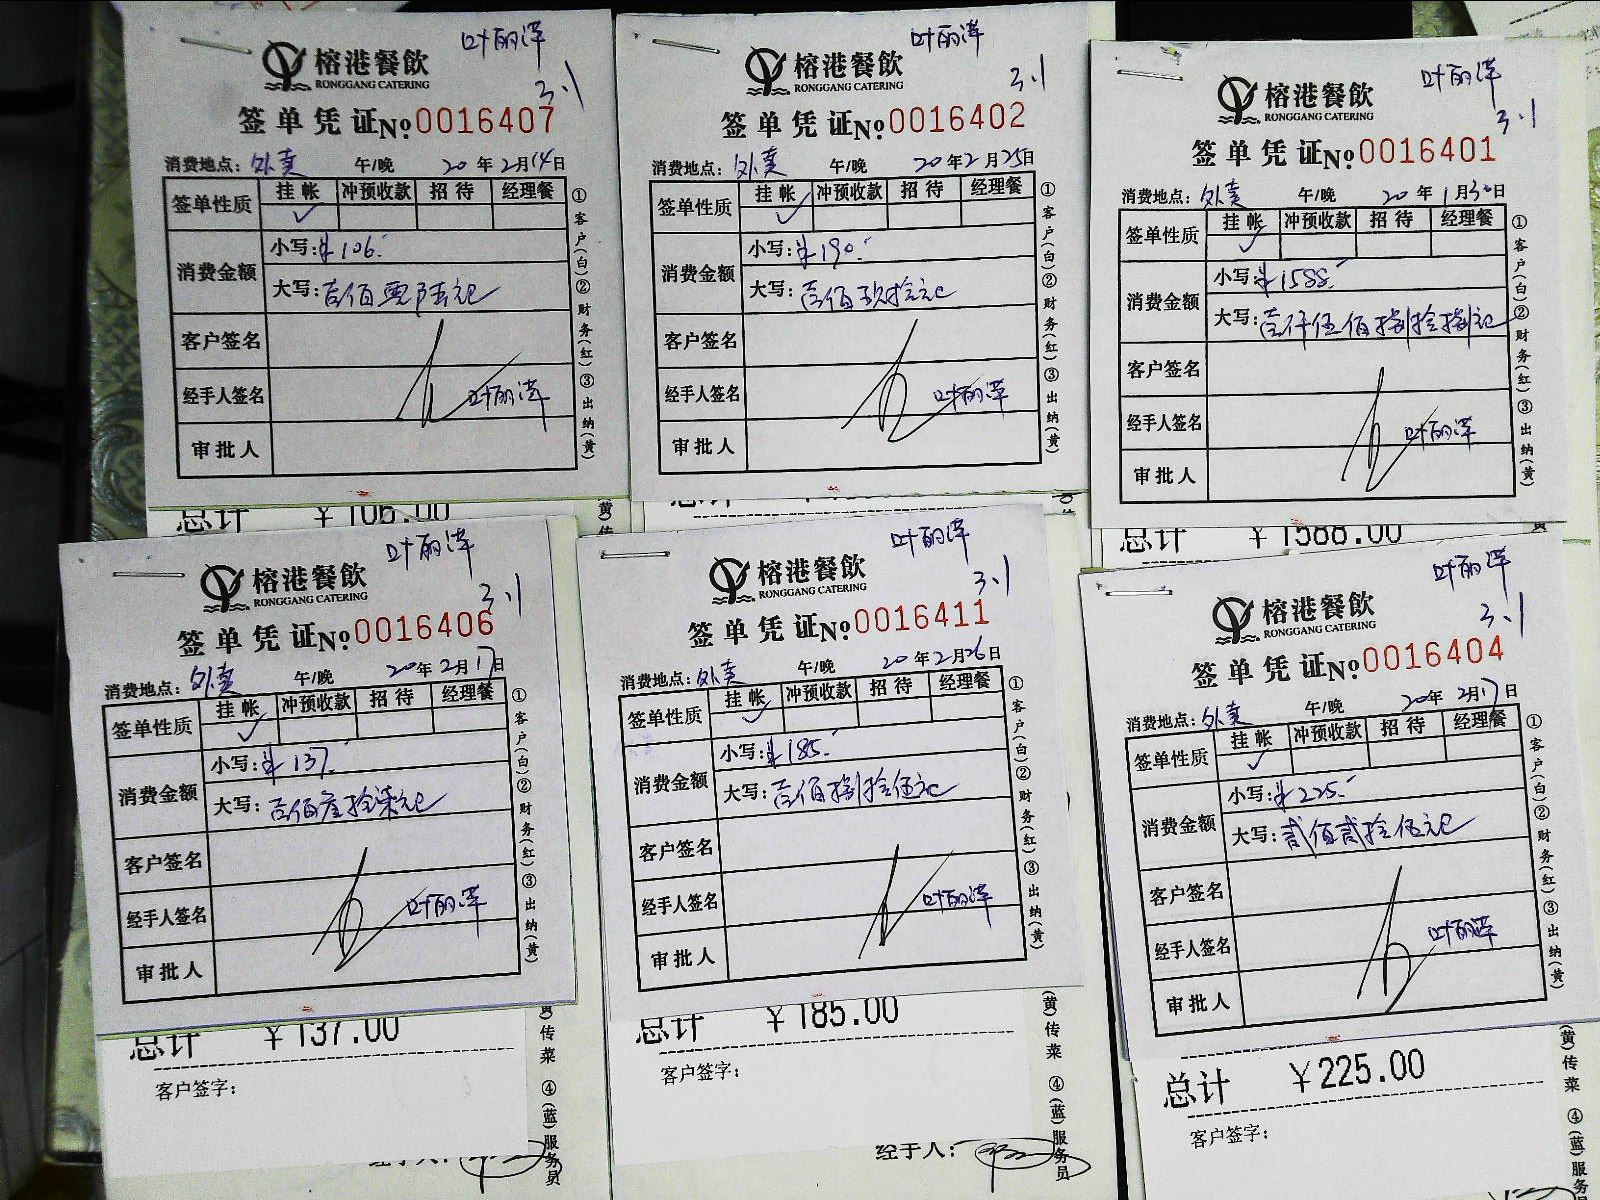 叶丽萍
榕港餐飲
RONGGANG CATERING
3.1
签单凭证No.0016407
消费地点:外卖 午/晚 20 年2月14日
签单性质 挂帐 冲预收款 招待 经理餐
✓
消费金额 小写:¥106.-
大写:壹佰零陆元
客户签名
经手人签名 叶丽萍
审批人
①客户(白)②财务(红)③出纳(黄)
总计 ¥106.00
叶丽萍
榕港餐飲
RONGGANG CATERING
3.1
签单凭证No.0016402
消费地点:外卖 午/晚 20年2月25日
签单性质 挂帐 冲预收款 招待 经理餐
✓
消费金额 小写:¥190.-
大写:壹佰玖拾元
客户签名
经手人签名 叶丽萍
审批人
①客户(白)②财务(红)③出纳(黄)
总计
叶丽萍
榕港餐飲
RONGGANG CATERING
3.1
签单凭证No.0016401
消费地点:外卖 午/晚 20 年1月30日
签单性质 挂帐 冲预收款 招待 经理餐
✓
消费金额 小写:¥1588.-
大写:壹仟伍佰捌拾捌元
客户签名
经手人签名 叶丽萍
审批人
①客户(白)②财务(红)③出纳(黄)
总计 ¥1588.00
叶丽萍
榕港餐飲
RONGGANG CATERING
3.1
签单凭证No.0016406
消费地点:外卖 午/晚 20年2月17日
签单性质 挂帐 冲预收款 招待 经理餐
✓
消费金额 小写:¥137.-
大写:壹佰叁拾柒元
客户签名
经手人签名 叶丽萍
审批人
①客户(白)②财务(红)③出纳(黄)
总计 ¥137.00
客户签字:
(黄)传菜 ④(蓝)服务员
叶丽萍
榕港餐飲
RONGGANG CATERING
3.1
签单凭证No.0016411
消费地点:外卖 午/晚 20年2月26日
签单性质 挂帐 冲预收款 招待 经理餐
✓
消费金额 小写:¥185.-
大写:壹佰捌拾伍元
客户签名
经手人签名 叶丽萍
审批人
①客户(白)②财务(红)③出纳(黄)
总计 ¥185.00
客户签字:
经手人:
(黄)传菜 ④(蓝)服务员
叶丽萍
榕港餐飲
RONGGANG CATERING
3.1
签单凭证No.0016404
消费地点:外卖 午/晚 20年2月17日
签单性质 挂帐 冲预收款 招待 经理餐
✓
消费金额 小写:¥225.-
大写:贰佰贰拾伍元
客户签名
经手人签名 叶丽萍
审批人
①客户(白)②财务(红)③出纳(黄)
总计 ¥225.00
客户签字:
(黄)传菜 ④(蓝)服务员